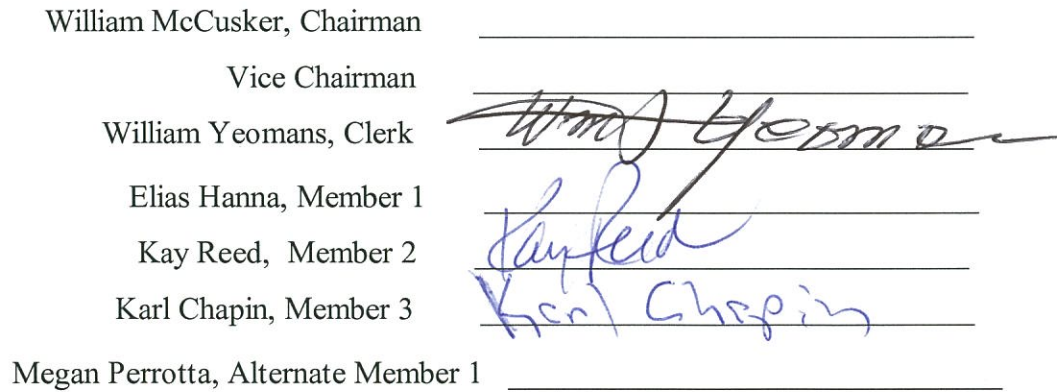 William McCusker, Chairman
Vice Chairman
William Yeomans, Clerk Wm J Yeomans
Elias Hanna, Member 1
Kay Reed, Member 2 Kay Reed
Karl Chapin, Member 3 Karl Chapin
Megan Perrotta, Alternate Member 1